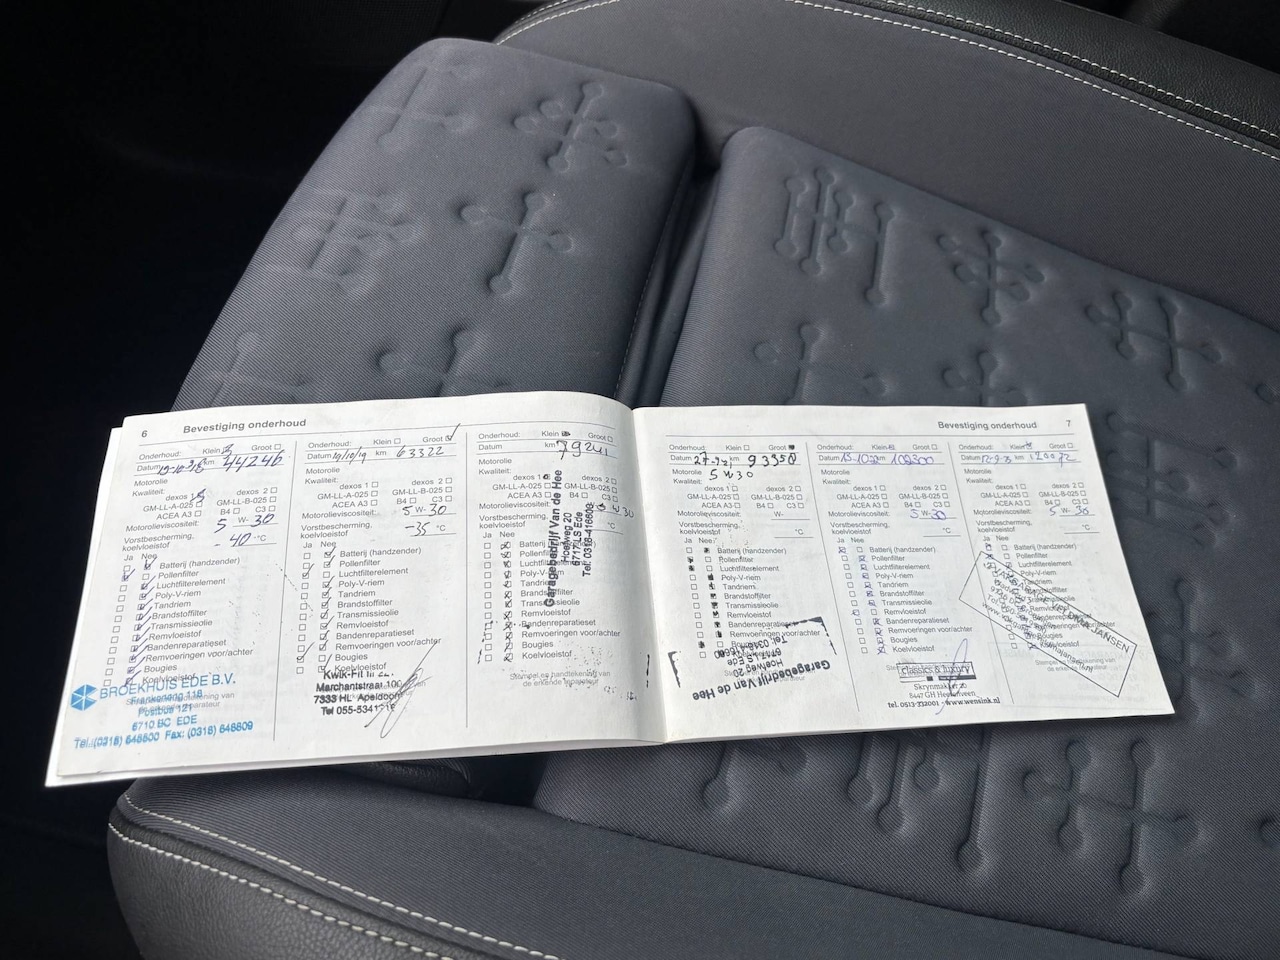 6 Bevestiging onderhoud
Onderhoud: Klein Groot
Datum km 44246
Motorolie
Kwaliteit:
dexos 1 dexos 2
GM-LL-A-025 GM-LL-B-025
ACEA A3 B4 C3
Motorolieviscositeit: 5 W- 30
Vorstbescherming,
koelvloeistof -40 °C
Ja Nee
Batterij (handzender)
Pollenfilter
Luchtfilterelement
Poly-V-riem
Tandriem
Brandstoffilter
Transmissieolie
Remvloeistof
Bandenreparatieset
Remvoeringen voor/achter
Bougies
Koelvloeistof
BROEKHUIS EDE B.V.
Frankeneng 118
Postbus 121
6710 BC EDE
Tel.: (0318) 648600 Fax: (0318) 648609
Onderhoud: Klein Groot
Datum 10/10/19 km 63322
Motorolie
Kwaliteit:
dexos 1 dexos 2
GM-LL-A-025 GM-LL-B-025
ACEA A3 B4 C3
Motorolieviscositeit: 5 W- 30
Vorstbescherming,
koelvloeistof -35 °C
Ja Nee
Batterij (handzender)
Pollenfilter
Luchtfilterelement
Poly-V-riem
Tandriem
Brandstoffilter
Transmissieolie
Remvloeistof
Bandenreparatieset
Remvoeringen voor/achter
Bougies
Koelvloeistof
Kwik-Fit
Marchantstraat 100
7333 HL Apeldoorn
Tel 055-5341
Onderhoud: Klein Groot
Datum km 79241
Motorolie
Kwaliteit:
dexos 1 dexos 2
GM-LL-A-025 GM-LL-B-025
ACEA A3 B4 C3
Motorolieviscositeit: W 30
Vorstbescherming,
koelvloeistof °C
Ja Nee
Batterij
Pollenfilter
Luchtfilterelement
Poly-V-riem
Tandriem
Brandstoffilter
Transmissieolie
Remvloeistof
Bandenreparatieset
Remvoeringen voor/achter
Bougies
Koelvloeistof
Stempel en handtekening van
de erkende reparateur
Garagebedrijf Van de Hee
Hoefweg 20
6717 LS Ede
Tel. 0318-416600
Bevestiging onderhoud 7
Onderhoud: Klein Groot
Datum km 93350
Motorolie 5 W30
Kwaliteit:
dexos 1 dexos 2
GM-LL-A-025 GM-LL-B-025
ACEA A3 B4 C3
Motorolieviscositeit: W-
Vorstbescherming,
koelvloeistof °C
Ja Nee
Batterij (handzender)
Pollenfilter
Luchtfilterelement
Poly-V-riem
Tandriem
Brandstoffilter
Transmissieolie
Remvloeistof
Bandenreparatieset
Remvoeringen voor/achter
Bougies
Koelvloeistof
Garagebedrijf Van de Hee
Hoefweg 20
6717 LS Ede
Onderhoud: Klein Groot
Datum km
Motorolie
Kwaliteit:
dexos 1 dexos 2
GM-LL-A-025 GM-LL-B-025
ACEA A3 B4 C3
Motorolieviscositeit: 5 W- 30
Vorstbescherming,
koelvloeistof °C
Ja Nee
Batterij (handzender)
Pollenfilter
Luchtfilterelement
Poly-V-riem
Tandriem
Brandstoffilter
Transmissieolie
Remvloeistof
Bandenreparatieset
Remvoeringen voor/achter
Bougies
Koelvloeistof
classics & luxury
Skrynmakker 20
8447 GH Heerenveen
tel. 0513-332001 - www.wensink.nl
Onderhoud: Klein Groot
Datum km
Motorolie
Kwaliteit:
dexos 1 dexos 2
GM-LL-A-025 GM-LL-B-025
ACEA A3 B4 C3
Motorolieviscositeit: 5 W- 30
Vorstbescherming,
koelvloeistof °C
Ja Nee
Batterij (handzender)
Pollenfilter
Luchtfilterelement
Poly-V-riem
Tandriem
Brandstoffilter
Transmissieolie
Remvloeistof
Bandenreparatieset
Remvoeringen voor/achter
Bougies
Koelvloeistof
Stempel en handtekening van
de erkende reparateur
JANSEN